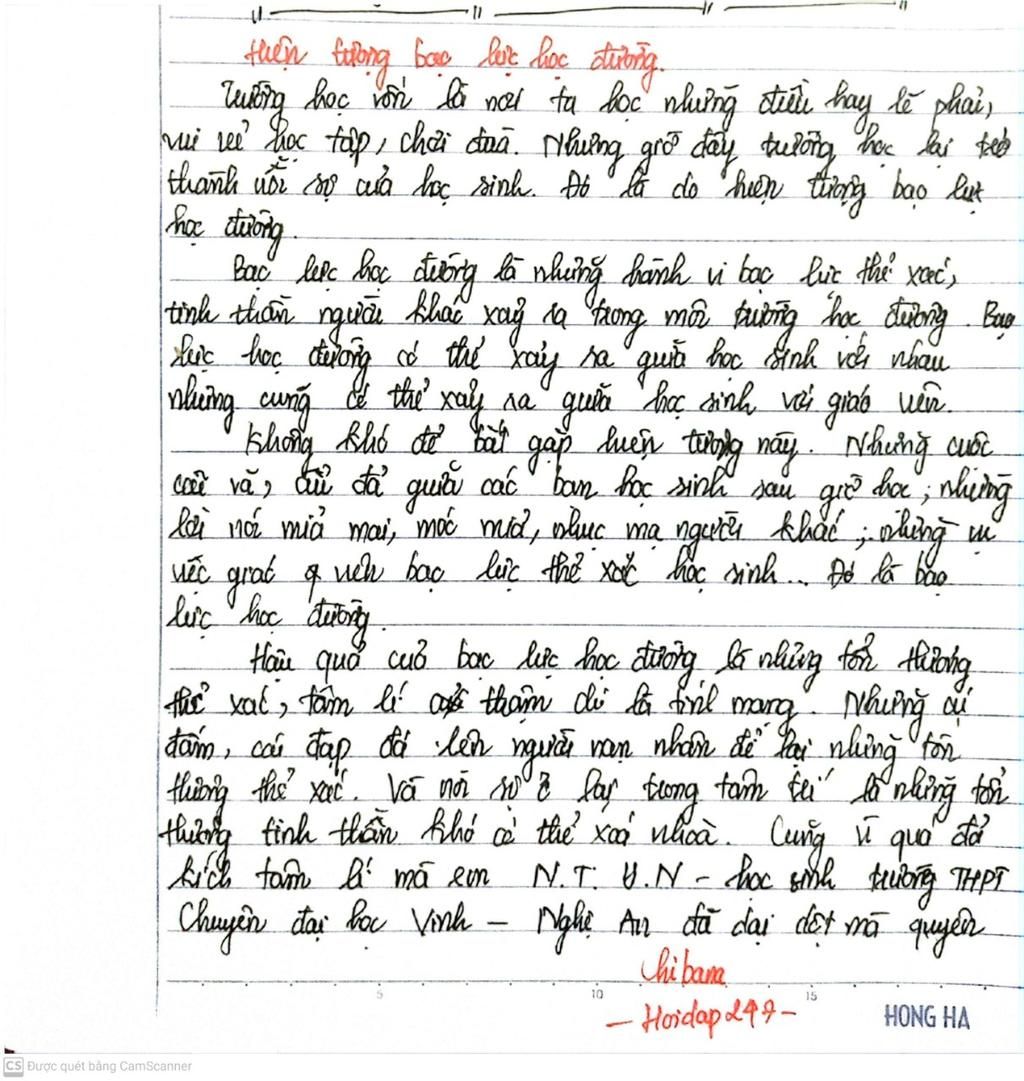 Hiện tượng bạo lực học đường.
Trường học vốn là nơi ta học những điều hay lẽ phải,
vui vẻ học tập, chơi đùa. Nhưng giờ đây trường học lại trở
thành nỗi sợ của học sinh. Đó là do hiện tượng bạo lực
học đường.
Bạo lực học đường là những hành vi bạo lực thể xác,
tinh thần người khác xảy ra trong môi trường học đường. Bạo
lực học đường có thể xảy ra giữa học sinh với nhau
nhưng cũng có thể xảy ra giữa học sinh với giáo viên.
Không khó để bắt gặp hiện tượng này. Những cuộc
cãi vã, ẩu đả giữa các bạn học sinh sau giờ học; những
lời nói mỉa mai, móc mỉa, nhục mạ người khác; những vụ
việc giáo viên bạo lực thể xác học sinh... Đó là bạo
lực học đường.
Hậu quả của bạo lực học đường là những tổn thương
thể xác, tâm lí thậm chí là tính mạng. Những cú
đấm, cái đạp đá lên người nạn nhân để lại những tổn
thương thể xác. Và nỗi sợ ở lại trong tâm trí là những tổn
thương tinh thần khó có thể xoá nhoà. Cũng vì quá đả
kích tâm lí mà em N.T.Y.N - học sinh trường THPT
Chuyên đại học Vinh - Nghệ An đã dại dột mà quyên
chibana
- Hoidap247 -
5 10 15
HONG HA
CS Được quét bằng CamScanner